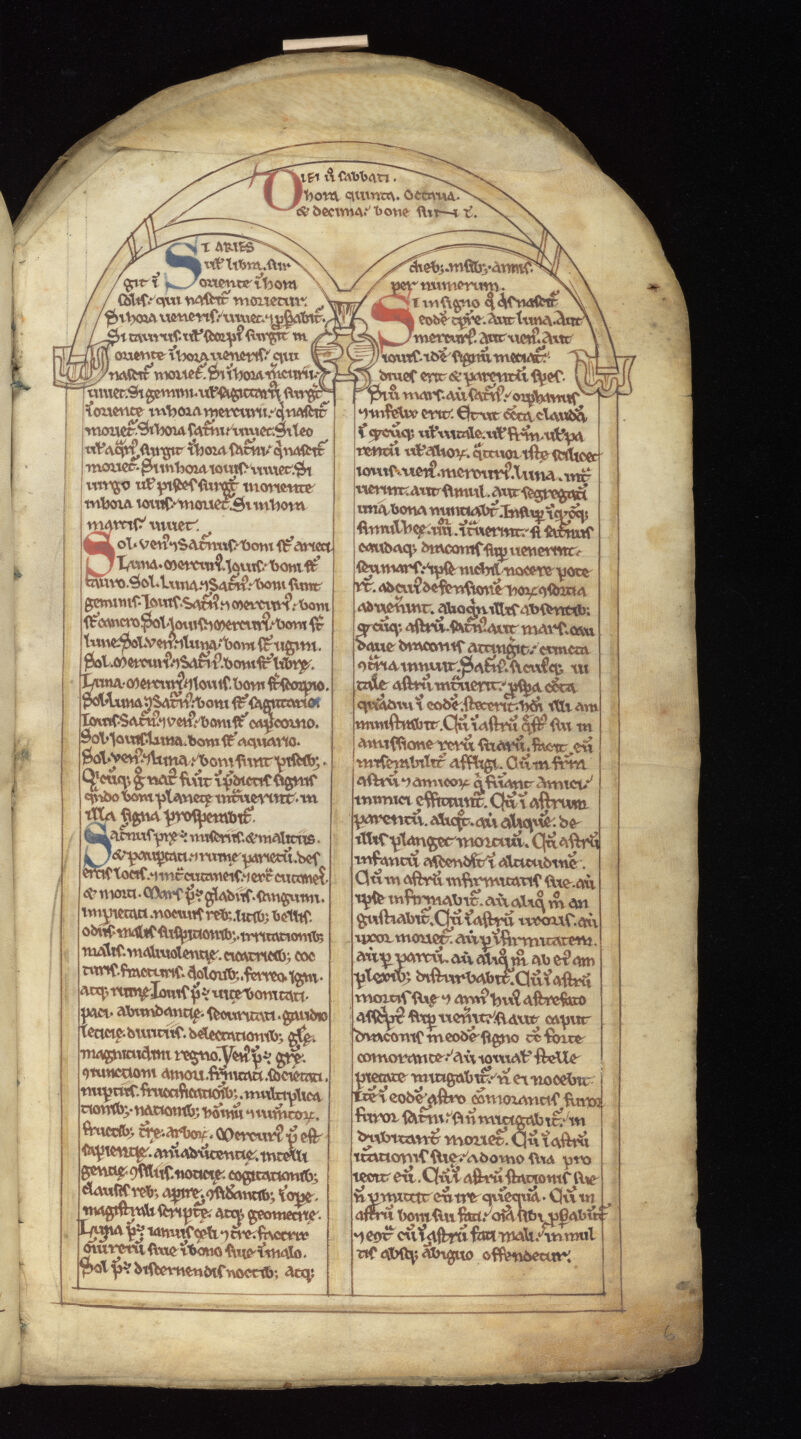 Diei ũ sabbati.
hora quinta. Octaua.
& decima: bone sunt
SI ARIES
uł libra. sur
git ĩ oriente ĩ hora
solis: qui nascit̃ morietur.
Si hora ueneris: uiuet. ⁊ phabit̃.
Si taurus uł scorpi⁹ surgit̃ in
oriente ĩ hora ueneris: qui
nascit̃ moriet̃. Si ĩ hora m̃curii:
uiuet. Si gemini. uł sagittari⁹ surgt̃
ĩ oriente in hora mercurii: q̇ nascit̃
moriet̃. Si hora satñi: uiuet. Si leo
uł aq̃ri⁹ surgit ĩ hora satñi: q̇ nascit̃
moriet̃. Si in hora iouis: uiuet. Si
uirgo uł pisces surgt̃ in oriente
in hora iouis: moriet̃. Si in hora
martis: uiuet.
Sol. uen⁹ ⁊ Sat̃nus: boni st̃ arieti
Luna. mercuri⁹. Iouis: boni st̃
tauro. Sol. Luna. ⁊ Satñ⁹: boni sunt
geminis. Iouis. Satñ⁹ ⁊ mercuri⁹: boni
st̃ cancro. Sol. Iouis ⁊ mercuri⁹: boni st̃
Sol. uen⁹. ⁊ luna: boni st̃ ũgini.
Sol. mercuri⁹ ⁊ Satñ⁹. boni st̃ librę.
Luna. mercuri⁹. ⁊ Iouis. boni st̃ scorpio.
Sol. Luna ⁊ Satñ⁹: boni st̃ sagittario.
Iouis. Satñ⁹. ⁊ uen⁹: boni st̃ cap̃corno.
Sol. Iouis. Luna. boni st̃ aquario.
Sol. uen⁹. ⁊ luna: boni sunt piscib;.
Q̇cũq; g̊ nat⁹ fũit ĩ p̃dictis signis
q̃ndo boni planetę int̃uerint. in
illa signa prosperabit̃.
Sat̃nus pręẽ miseriis. & maliciis.
& paup̃tati. ⁊ ruinę parietũ. des
ertis locis. ⁊ int̃ cutaneis. ⁊ ext̃ cutaneis.
& morti. Mars p̃ẽ gladiis. sanguini.
impietati. nociuis reb;. litib; bellis.
odiis. malis suspitionib;. irritationib;
malis. maliuolentię. cicatricib;. coc
turis. fracturis. dolorib;. ferreo. igni.
atq; ruinę. Iouis p̃ẽ uitę bonitati.
paci. abundantię. securitati. gaudio
leticię. diuitiis. delectationib;. głę.
magnitudini regno. Uen⁹ p̃ẽ grę̃.
9iunctioni amori. fr̃nitati. societati.
nuptiis. fructificatiõib;. multiplica
tionib;. nationib;. hõinũ ⁊ iumtoꝝ.
fructib;. tr̃ę. arboꝝ. Mercuri⁹ p̃ est
sapientię. aniaduertentię. intelli
gentię. 9siliis. noticię. cogitationib;
clausis reb; apire. 9sidantib; ĩ opę.
magistrali scripturę. atq; geometrię.
Luna p̃ẽ ianuis cęli ⁊ tr̃e. factrix
oĩu rerũ siue ĩ bono siue ĩ malo.
Sol p̃ẽ discernendis noctib; atq;
dieb;. msib;. annis.
per numerum.
Si in signo q̊ q̇s nascit̃
eodẽ tp̃re. aut luna. aut
mercuri⁹. aut uen⁹. aut
iouis. idẽ signũ meciat̃:
diues erit & parentũ spes.
Si ũ mars. aũ satñ⁹: orphanus
⁊ infelix erit. Et ut cẽta claudã
ĩ q̊cũq; uł uitale. uł fr̃m. uł pa
rentũ uł alioꝝ. q̃ttuor istę scilicet
iouis. uen⁹. mercuri⁹. luna. int̃
uerint. aut simul. aut segregati
una. bona nuntiabt̃. Insup̃ ĩ q̊cq;
simul hęc. iiii. ĩt̃uerint. si sat̃nus
caudaq; draconis sup̃uenerint:
seu mars: ipse nichil nocere pote
rt̃. ad cui⁹ defensionẽ hoꝝ 9sortia
aduenũnt. alioq̇n illis absentib;
q̊cũq; astrũ. Satñ⁹. aut mars. cau
daue draconis attingit: cuncta
9tr̃ia innuit. Satñ⁹. si cuiusq; ui
tale astrũ int̃uerit: p̃spa cẽta
quãdiu ĩ eodẽ steterit: hõi illi am
ministrabit. Cũ ĩ astrũ q̃st⁹ sui in
amissione rerũ suarũ. facit eũ
miserabilit̃ affligi. Cũ in fr̃m
astrũ ⁊ amicoꝝ q̇ fũant amici:
inimici efficiunt̃. Cũ ĩ astrum
parentũ. aliq̃t. aũ aliquẽ. de
illis planget mortuũ. Cũ astrũ
infantũ ascendit̃ ĩ altitudinẽ.
Cũ in astrũ infirmitatis sue. aũ
ipse infirmabit̃. aũ aliq̊ m̊ an
gustiabit̃. Cũ ĩ astrũ uxoris. aũ
uxor moriet̃. aũ p̃ ĩfirmitatem.
aũ p̃ partũ. aũ aliq̊ m̊ ab ei⁹ am
plexib; disturbabit̃. Cũ ĩ astrũ
mortis suę ⁊ anni hui⁹ astrefato
sup̃ uenĩt: si aut caput
draconis in eodẽ signo eẽ forte
comorante: aũ iouiał stelle
pietate mitigabit̃: ñ ei nocebit
Itẽ ĩ eodẽ astro cõmorantis furor
furor satñi: si ñ mitigabit̃: in
dubitant̃ moriet̃. Cũ ĩ astrũ
itationis sue: a domo sua pro
iecit eũ. Cũ ĩ astrũ stationis sue
ñ p̃mittit eũ ire quẽquã. Cũ in
astrũ boni sui fati: oĩa sibi p̃habũt
⁊ e9t̃ cũ ĩ astrũ fati mali: in mul
tis absq; ãbiguo offendetur.
6